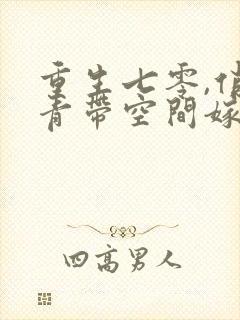 重生七零,俏
青帶空間嫁
四高男人